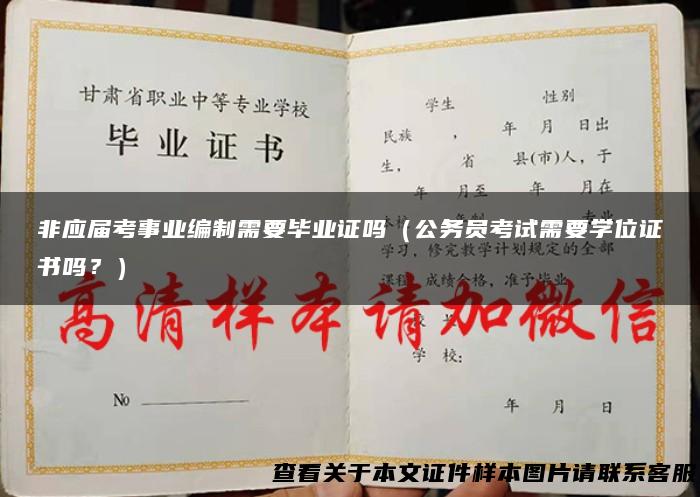 甘肃省职业中等专业学校
毕业证书
No
学生 性别
民族 ， 年 月 日出
生， 省 县(市)人，于
年 月至 年 月在
专业
学习，修完教学计划规定的全部
课程，成绩合格，准予毕业
校 长
学 校：
年 月 日
非应届考事业编制需要毕业证吗（公务员考试需要学位证
书吗？）
高清样本请加微信
查看关于本文证件样本图片请联系客服